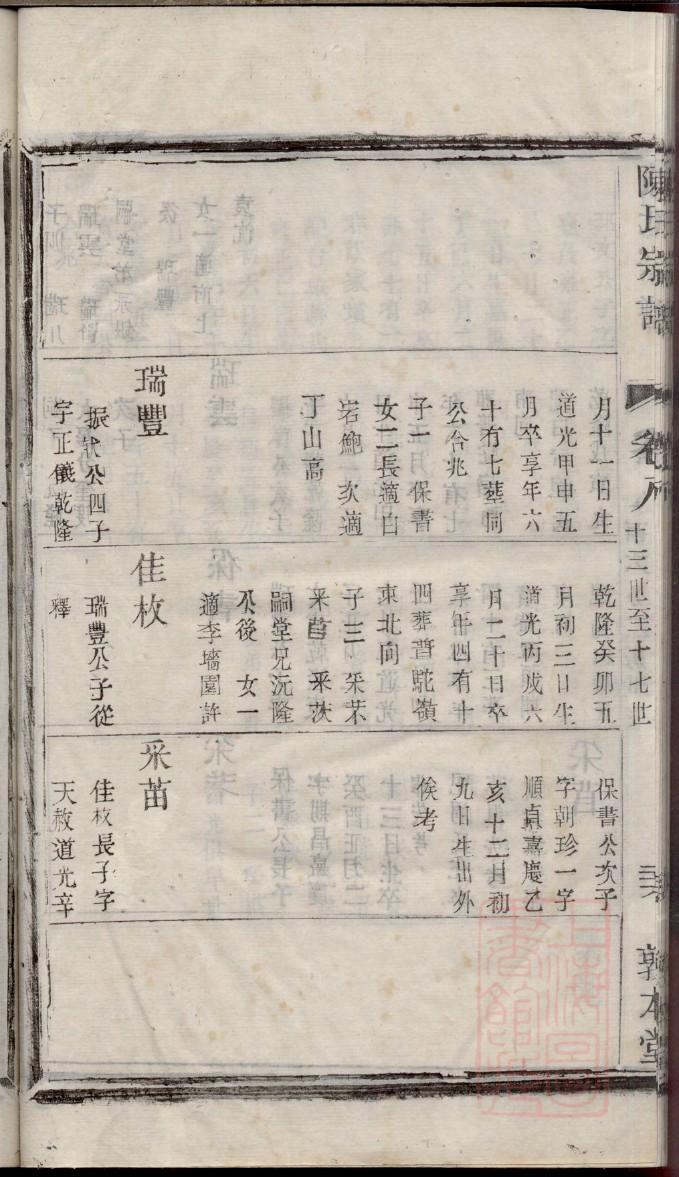 陳氏宗譜
卷八
十三世至十七世
敦本堂
月十一日生
道光甲申五
月卒享年六
十有七塟同
公合兆
子一 保書
女二長適白
岩鮑 次適
丁山高
瑞豐
振狀公四子
字正儀乾隆
乾隆癸卯五
月初三日生
道光丙戌六
月二十日卒
享年四有十
四葬普駝嶺
東北向
子三 采芣
采苢 采茨
嗣堂兄沅隆
公後 女一
適李墻園許
佳枚
瑞豐公子從
釋
保書公次子
字朝珍一字
順貞嘉慶乙
亥十二月初
九日生出外
俟考
采苗
佳枚長子字
天赦道光辛